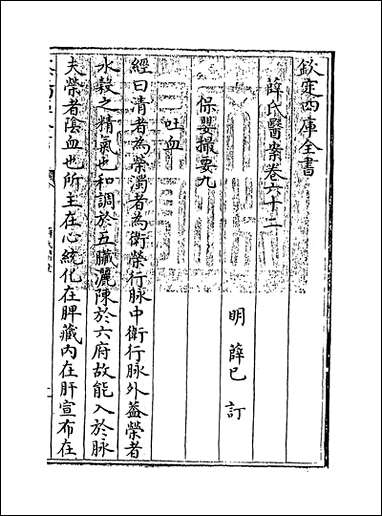 欽定四庫全書
薛氏醫案卷六十二
明 薛己 訂
保嬰撮要九
吐血
經曰清者為榮濁者為衛榮行脉中衛行脉外葢榮者
水榖之精氣也和調於五臟灑陳於六府故能入於脉
夫榮者陰血也所主在心統化在脾藏內在肝宣布在